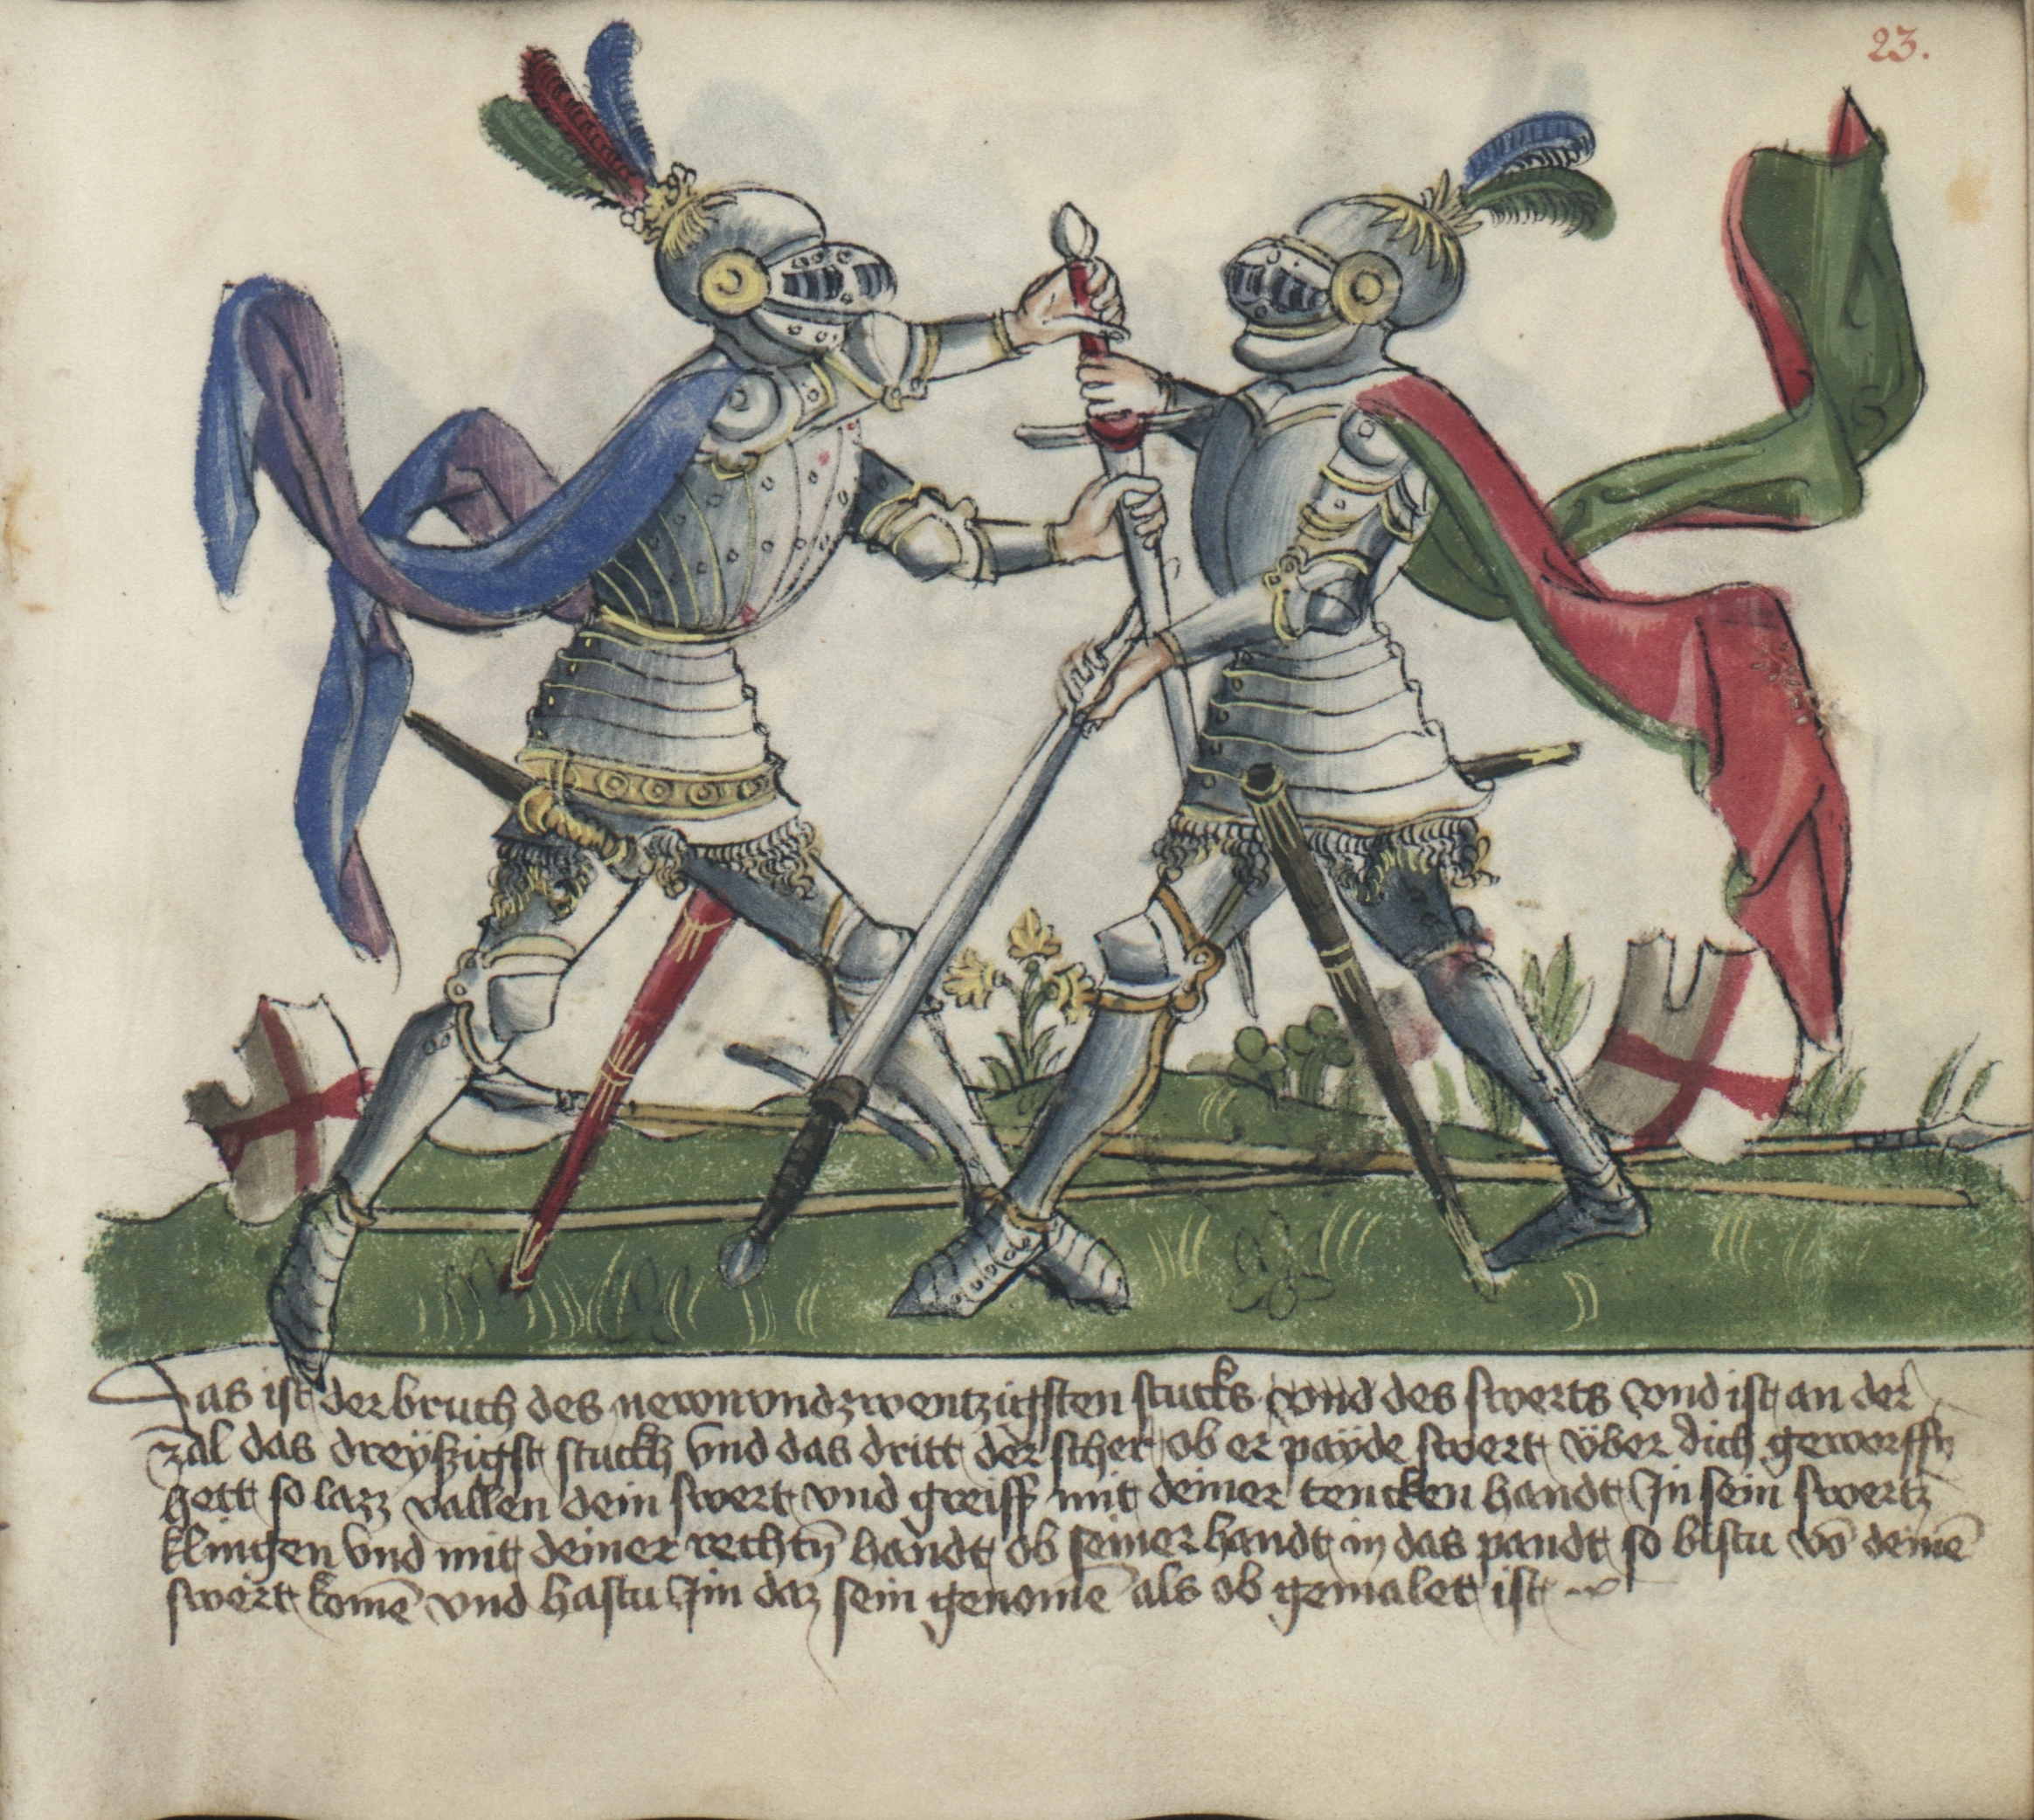 23.
Das ist der bruch des newnvndzwentzigisten stucks vnd des swerts vnd ist an der
zal das dreyßzigist stuckh vnd das dritt der scher ob er payde swert vber dich geworffn̄
hett so lazz vallen dein swert vnd greiff mit deiner tencken handt In sein swertz
klingen vnd mit deiner rechtn̄ handt ob seiner handt in das pandt so bistu vō deinē
swert komē vnd hastu Im daz sein genomē als ob gemalet ist